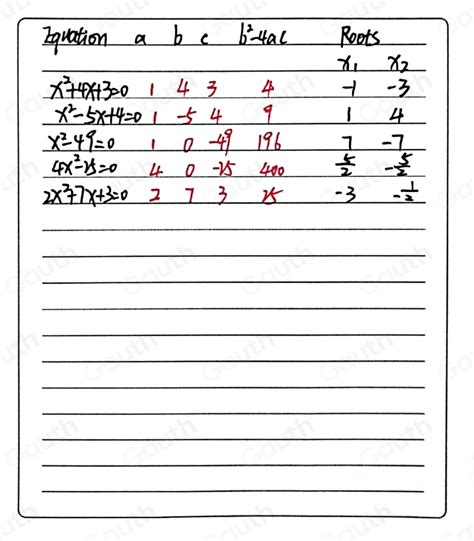 Equation a b c b²-4ac Roots
x₁ x₂
x²+4x+3=0 1 4 3 4 -1 -3
x²-5x+4=0 1 -5 4 9 1 4
x²-49=0 1 0 -49 196 7 -7
4x²-25=0 4 0 -25 400 5/2 -5/2
2x²+7x+3=0 2 7 3 25 -3 -1/2